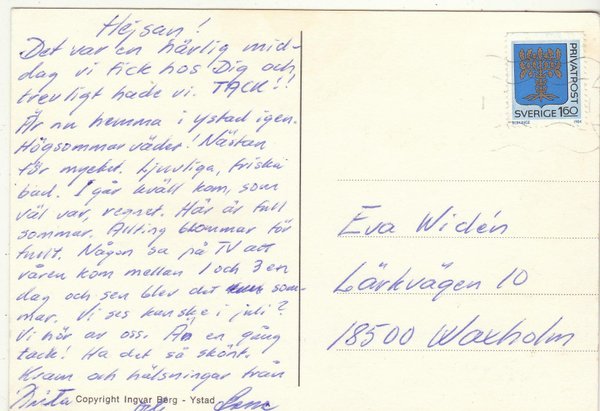 Hejsan!
Det var en härlig mid-
dag vi fick hos Dig och
trevligt hade vi. TACK!!
Är nu hemma i Ystad igen.
Högsommarväder! Nästan
för mycket. Ljuvliga, friska
bad. I går kväll kom, som
väl var, regnet. Här är full
sommar. Allting blommar för
fullt. Någon sa på TV att
våren kom mellan 1 och 3 en
dag och sen blev det som-
mar. Vi ses kanske i juli?
Vi hör av oss. Än en gång
tack! Ha det så skönt.
Kram och hälsningar från
Copyright Ingvar Berg - Ystad
PRIVATPOST
SVERIGE 1.60
Eva Widén
Lärkvägen 10
18500 Waxholm